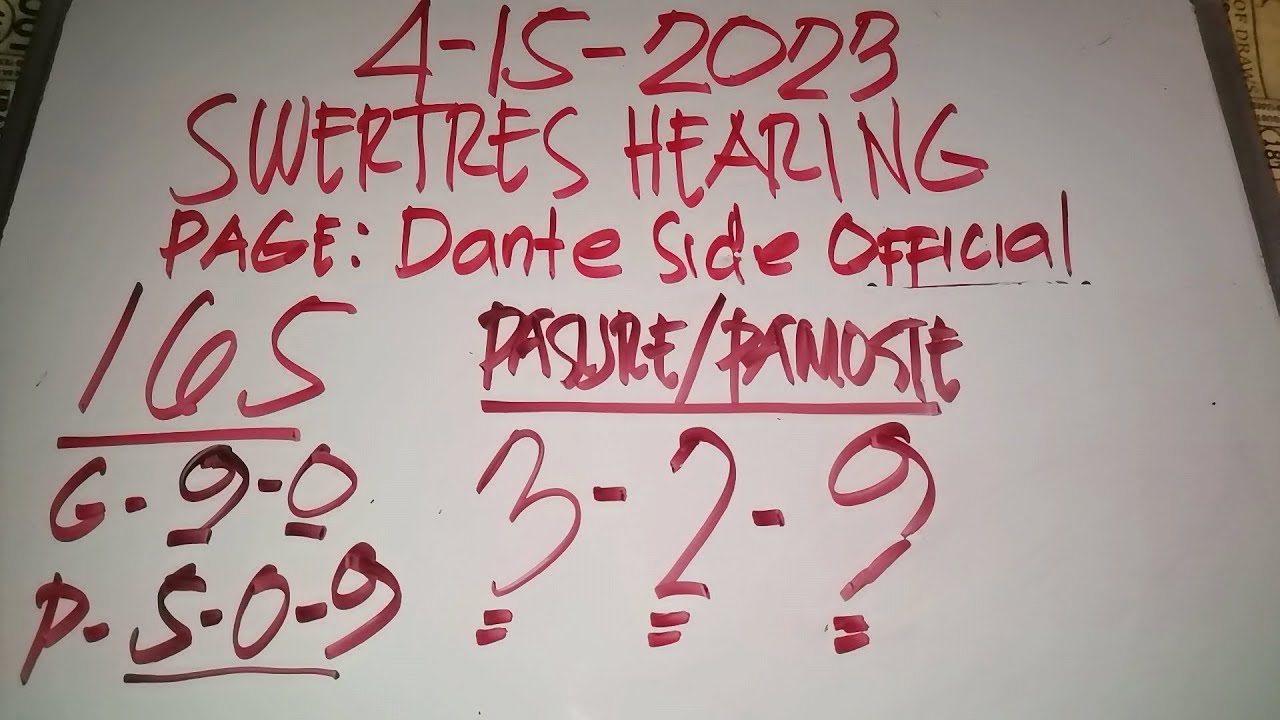 4-15-2023
SWERTRES HEARING
PAGE: Dante Side OFFICIAL
165
G-9-0
P-5-0-9
PASURE/PAMOSTE
3-2-9
OF DRAWS